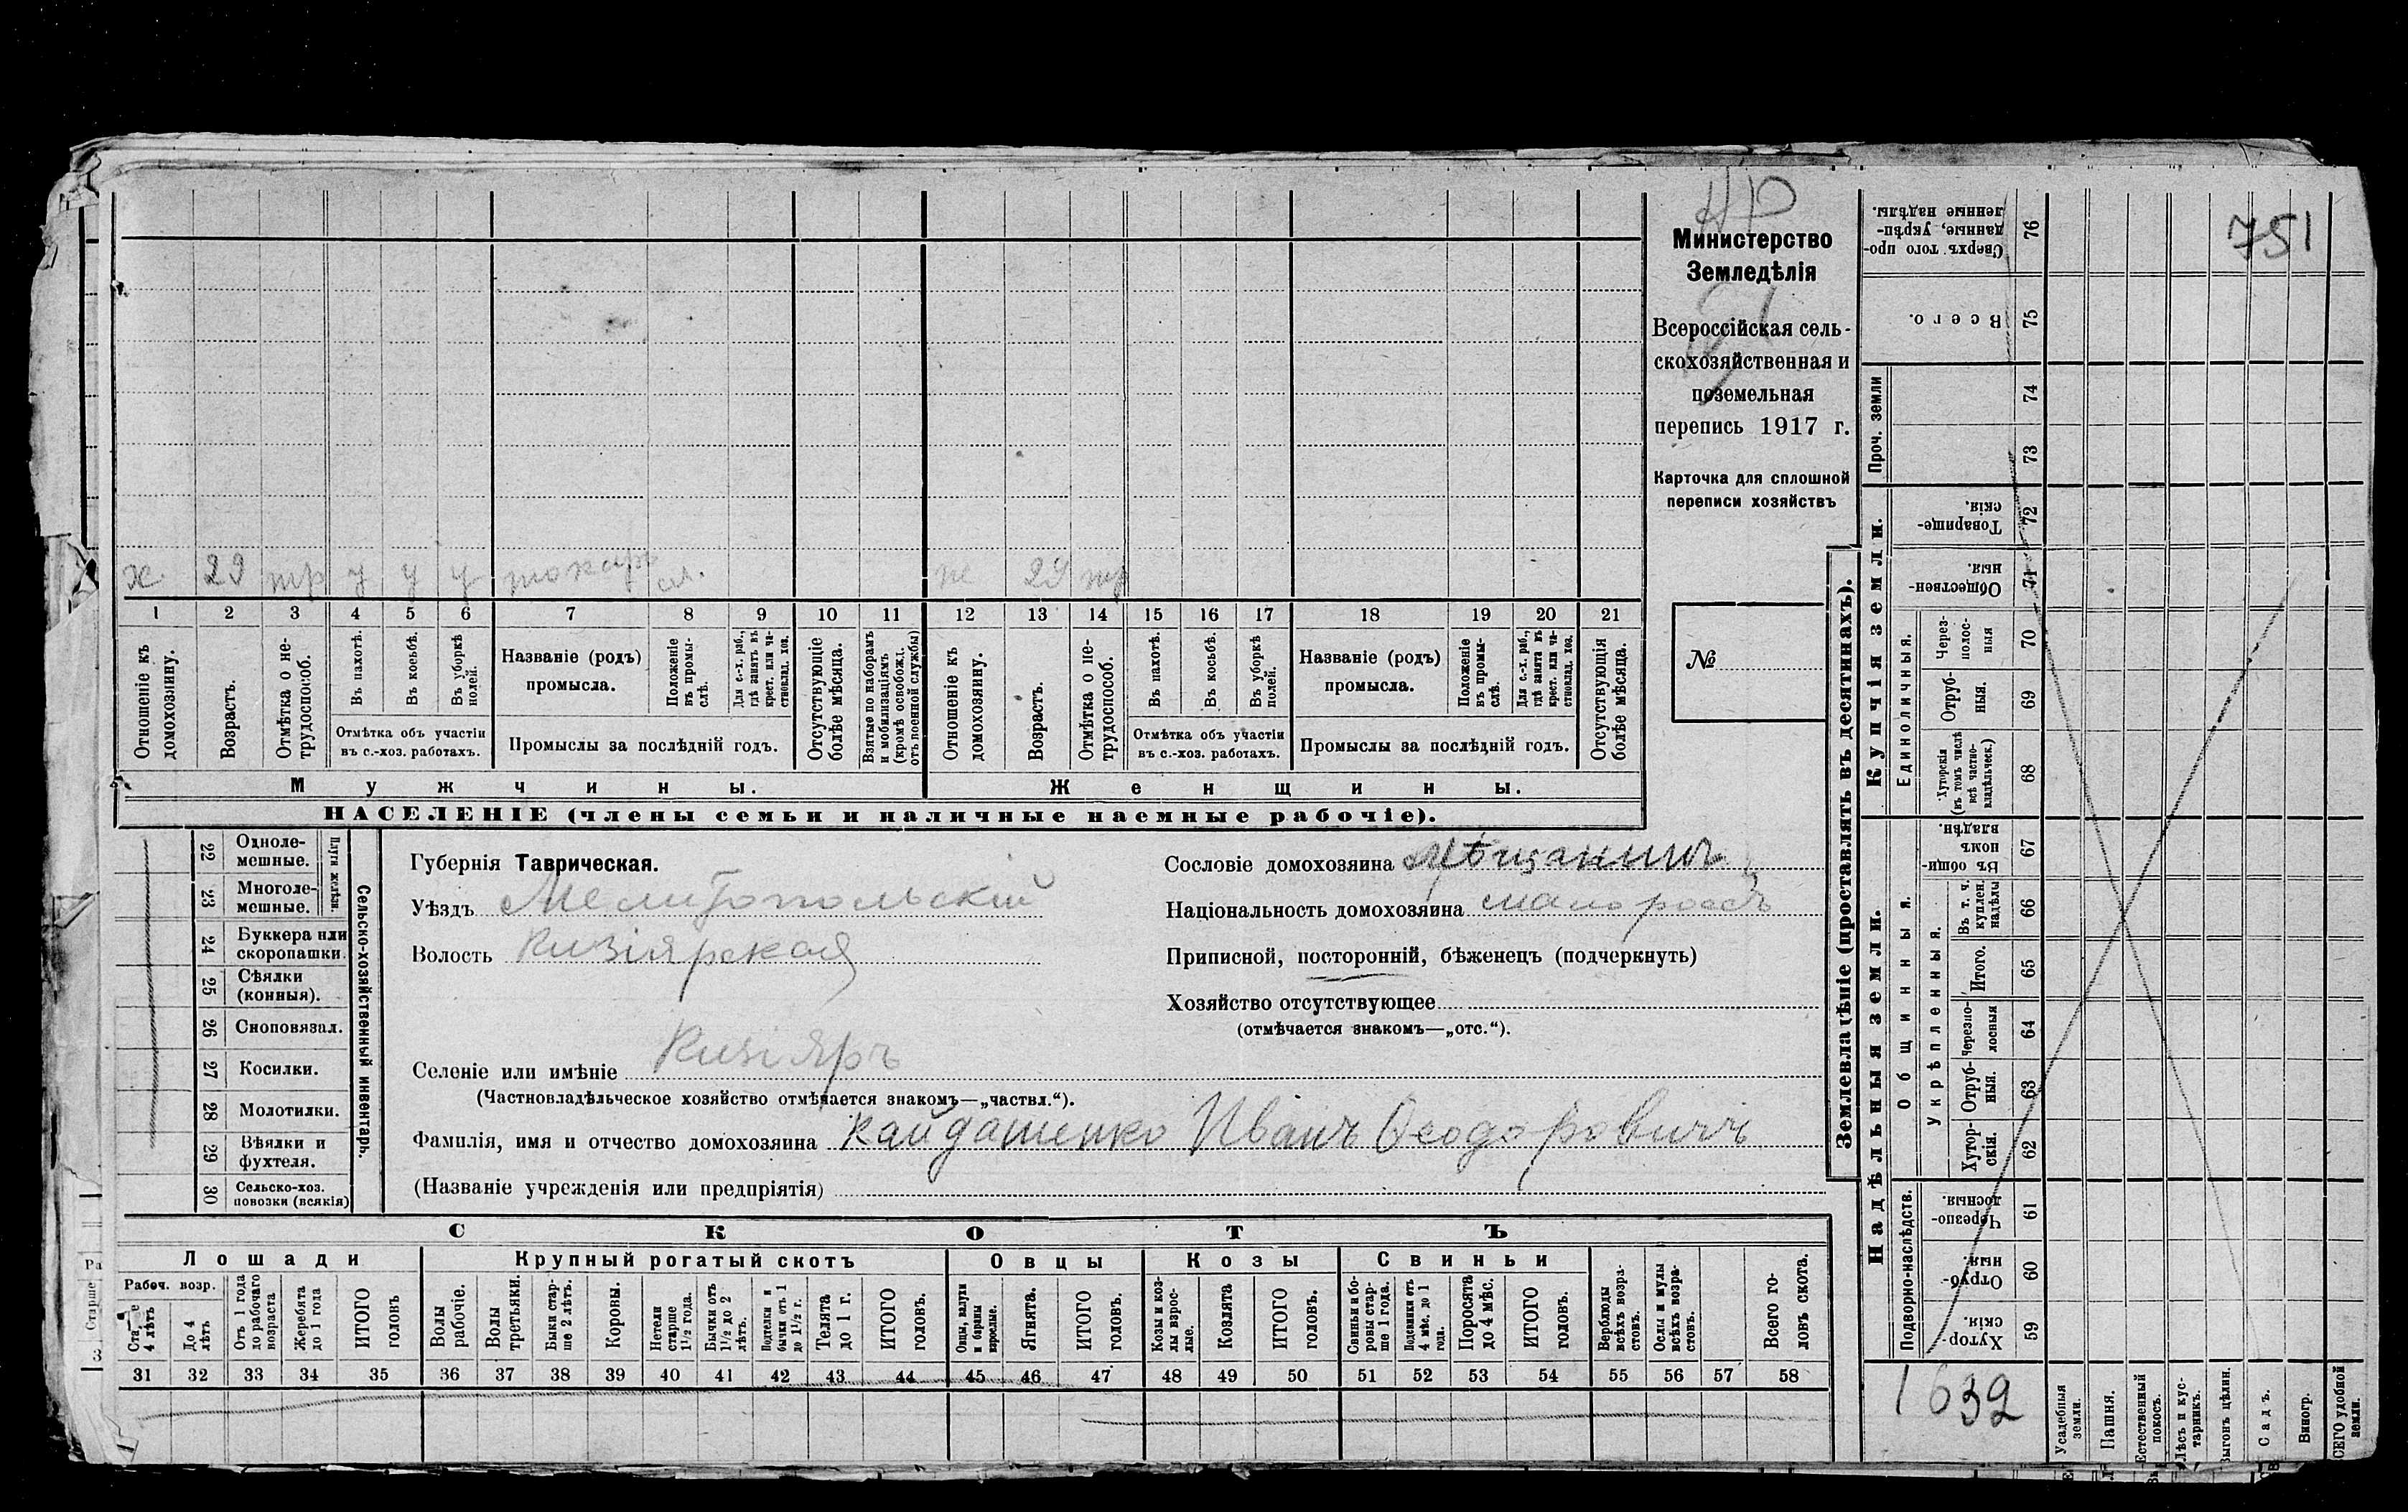 НР
751
Министерство
Земледѣлія
Всероссійская сель-
скохозяйственная и
поземельная
перепись 1917 г.
Карточка для сплошной
переписи хозяйствъ
№
х 29 тр у у у токарь
ж 29 тр
1 2 3 4 5 6 7 8 9 10 11 12 13 14 15 16 17 18 19 20 21
Отношеніе къ домохозяину.
Возрастъ.
Отмѣтка о не-трудоспособ.
Въ пахотѣ.
Въ косьбѣ.
Въ уборкѣ полей.
Отмѣтка объ участіи
въ с.-хоз. работахъ.
Названіе (родъ)
промысла.
Положеніе въ промы-слѣ.
Для с.-х. раб., гдѣ занятъ въ крест. или ча-стновлад. хоз.
Промыслы за послѣдній годъ.
Отсутствующіе болѣе мѣсяца.
Взятые по наборамъ и мобилизаціямъ (кромѣ освобожд. отъ военной службы)
Отношеніе къ домохозяину.
Возрастъ.
Отмѣтка о не-трудоспособ.
Въ пахотѣ.
Въ косьбѣ.
Въ уборкѣ полей.
Отмѣтка объ участіи
въ с.-хоз. работахъ.
Названіе (родъ)
промысла.
Положеніе въ промы-слѣ.
Для с.-х. раб., гдѣ занята въ крест. или ча-стновлад. хоз.
Промыслы за послѣдній годъ.
Отсутствующія болѣе мѣсяца.
Мужчины.
Женщины.
НАСЕЛЕНІЕ (члены семьи и наличные наемные рабочіе).
Сельско-хозяйственный инвентарь.
Плуги желѣзн.
22 Одноле-мешные.
23 Многоле-мешные.
24 Буккера или скоропашки.
25 Сѣялки (конныя).
26 Сноповязал.
27 Косилки.
28 Молотилки.
29 Вѣялки и фухтеля.
30 Сельско-хоз. повозки (всякія)
Губернія Таврическая.
Уѣздъ Мелитопольскій
Волость Кизіярская
Сословіе домохозяина мѣщанинъ
Національность домохозяина малороссъ
Приписной, посторонній, бѣженецъ (подчеркнуть)
Хозяйство отсутствующее
(отмѣчается знакомъ—„отс.“).
Селеніе или имѣніе Кизіяръ
(Частновладѣльческое хозяйство отмѣчается знакомъ—„частвл.“).
Фамилія, имя и отчество домохозяина Кайдашенко Иванъ Ѳеодоровичъ
(Названіе учрежденія или предпріятія)
СКОТЪ
Лошади
Крупный рогатый скотъ
Овцы
Козы
Свиньи
Рабоч. возр.
Старше 4 лѣтъ
До 4 лѣтъ
Отъ 1 года до рабочаго возраста
Жеребята до 1 года
ИТОГО головъ
Волы рабочіе.
Волы третьяки.
Быки стар-ше 2 лѣтъ.
Коровы.
Нетели старше 1½ года.
Бычки отъ 1½ до 2 лѣтъ.
Подтелки и бычки отъ 1 до 1½ г.
Телята до 1 г.
ИТОГО головъ.
Овцы, валухи и бараны взрослые.
Ягнята.
ИТОГО головъ.
Козы и коз-лы взрос-лые.
Козлята
ИТОГО головъ.
Свиньи и бо-ровы стар-ше 1 года.
Подсвинки отъ 4 мѣс. до 1 года.
Поросята до 4 мѣс.
ИТОГО головъ.
Верблюды всѣхъ возра-стовъ.
Ослы и мулы всѣхъ возра-стовъ.
Всего го-ловъ скота.
31 32 33 34 35 36 37 38 39 40 41 42 43 44 45 46 47 48 49 50 51 52 53 54 55 56 57 58
Землевладѣніе (проставлять въ десятинахъ).
Купчія земли.
Надѣльныя земли.
Проч. земли
Единоличныя.
Общинныя.
Укрѣпленныя.
Подворно-наслѣдств.
Сверхъ того про-данные, укрѣп-ленные надѣлы. 76
Всего. 75
74
73
Товарище-скія. 72
Обществен-ныя. 71
Через-полос-ныя 70
Отруб-ныя. 69
Хуторскія (въ томъ числѣ всѣ частно-владѣльческ.) 68
Въ общин-номъ владѣн. 67
Въ т. ч. куплен. надѣлы 66
Итого. 65
Черезпо-лосныя 64
Отруб-ныя. 63
Хутор-скія. 62
Черезпо-лосныя. 61
Отруб-ныя. 60
Хутор-скія. 59
1632
Усадебныя земли.
Пашня.
Естественный покосъ.
Лѣсъ и кус-тарникъ.
Выгонъ цѣлин.
Садъ.
Виногр.
ВСЕГО удобной земли.